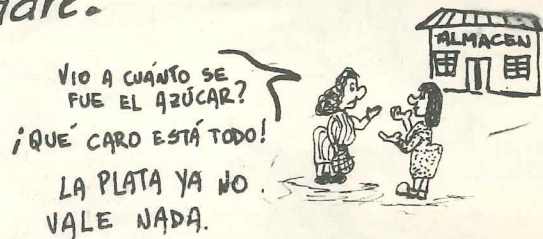 VIO A CUÁNTO SE
FUE EL AZÚCAR?
¡QUÉ CARO ESTÁ TODO!
LA PLATA YA NO
VALE NADA.
ALMACEN